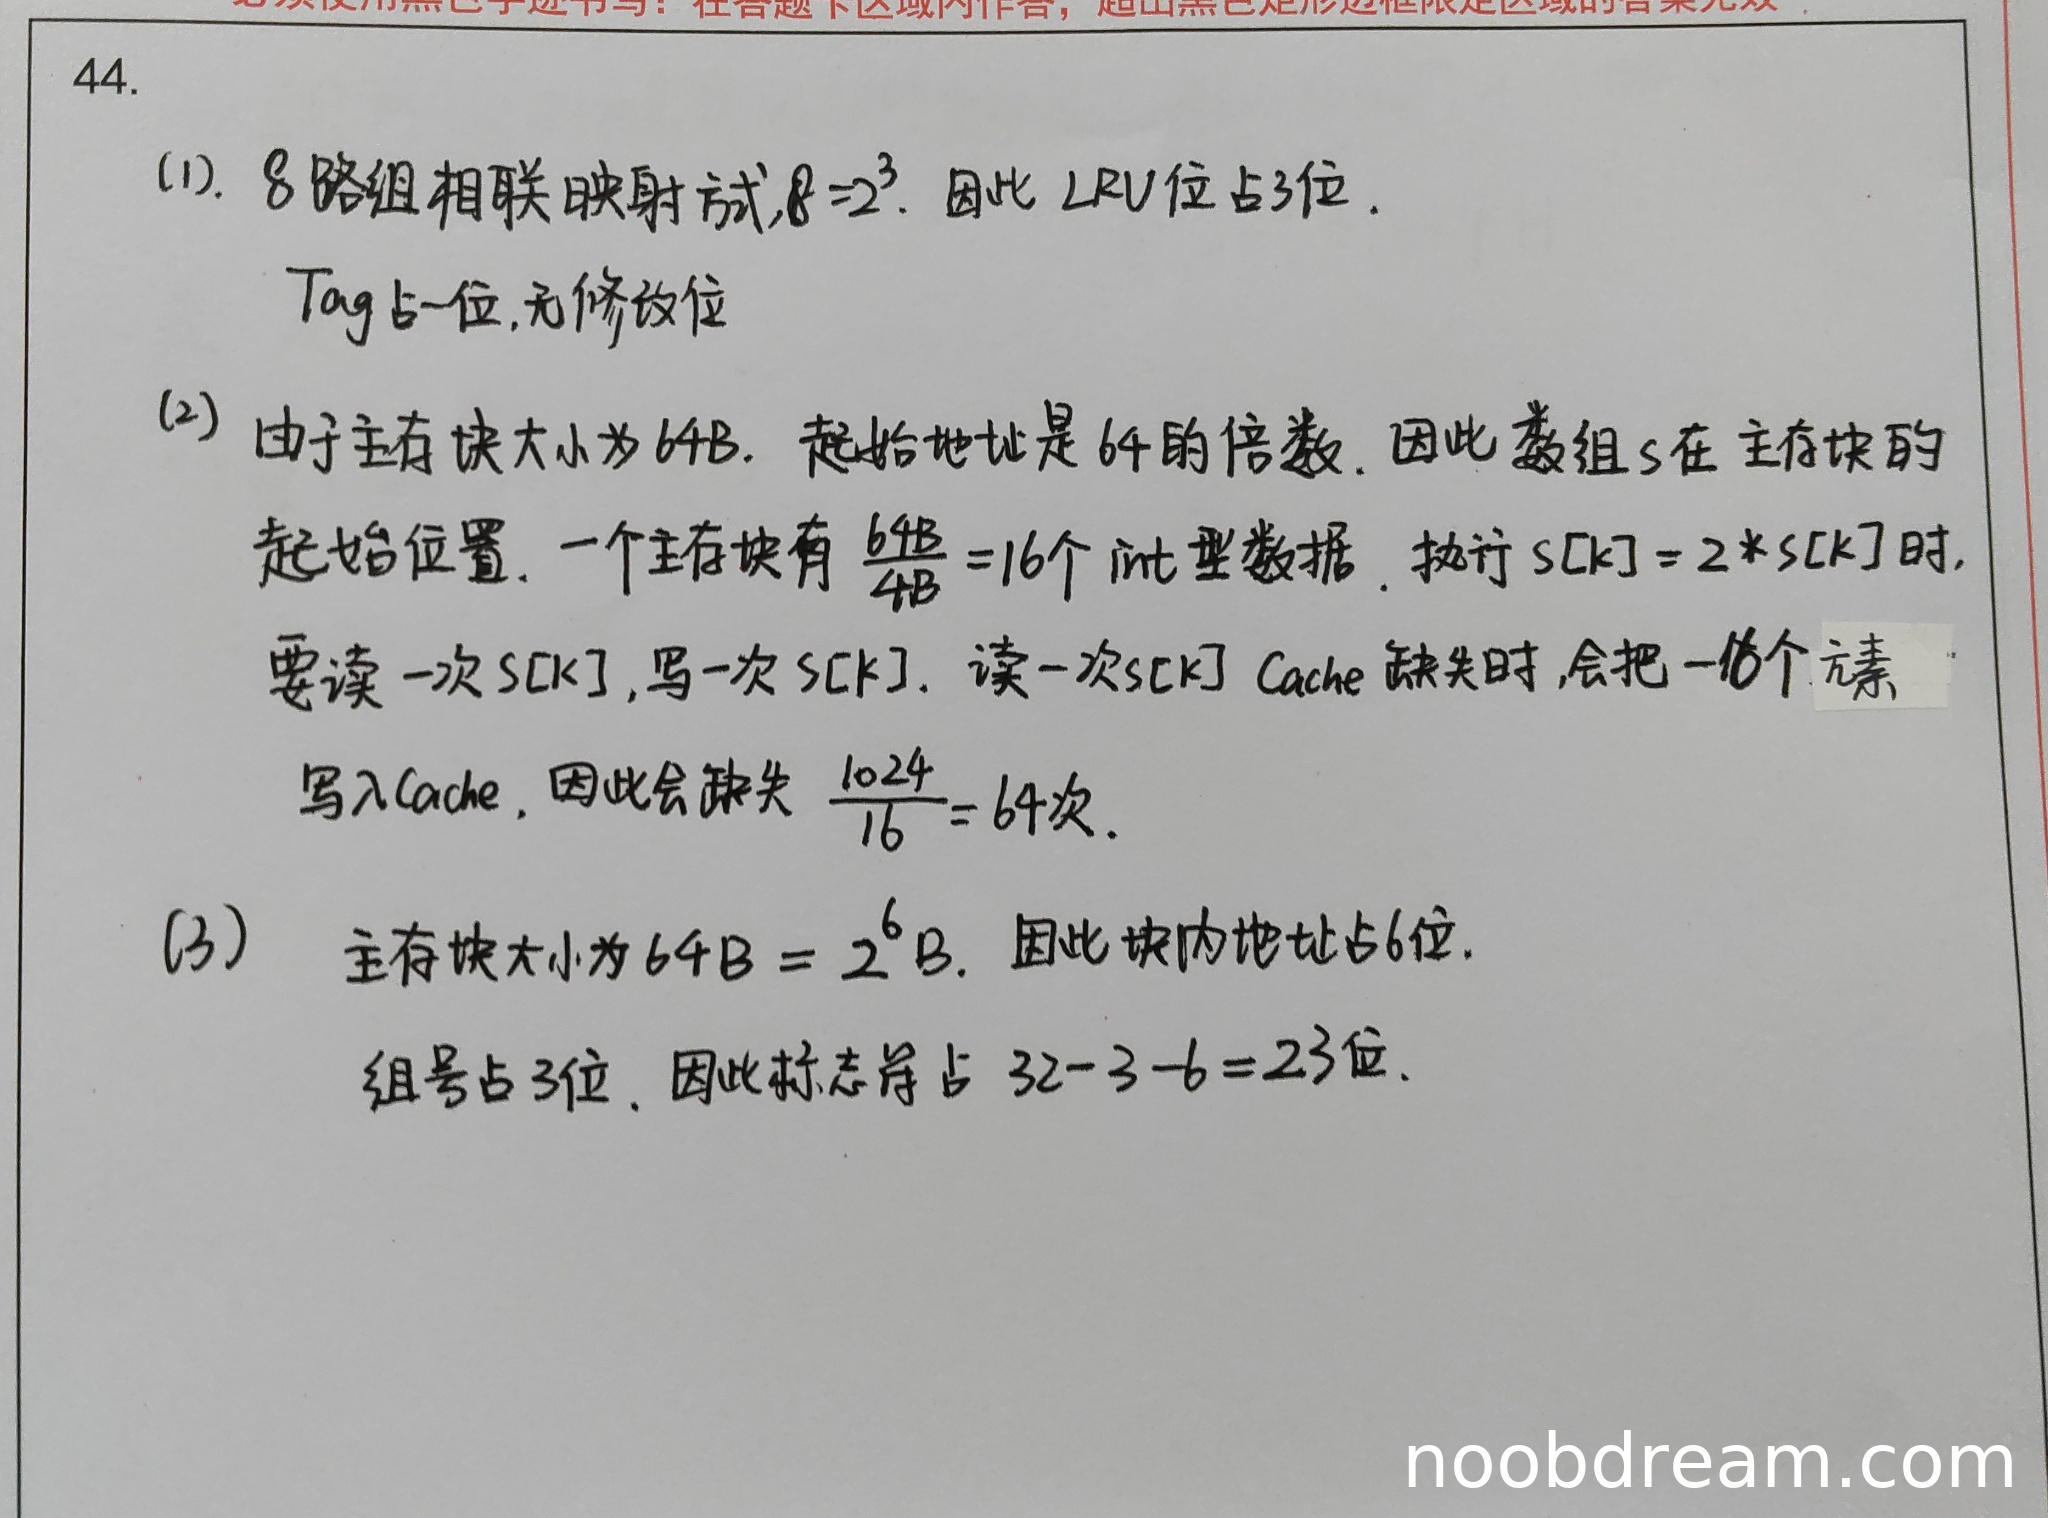 必须使用黑色字迹书写!在答题卡区域内作答,超出黑色矩形边框限定区域的答案无效
44.
(1). 8路组相联映射方式,8=2³. 因此 LRU位占3位.
Tag占一位,无修改位
(2) 由于主存块大小为64B. 起始地址是64的倍数. 因此数组s在主存块的
起始位置. 一个主存块有 64B/4B =16个 int型数据. 执行 S[K]=2*S[K]时,
要读一次S[K],写一次S[K]. 读一次S[K] Cache缺失时,会把一16个元素
写入Cache. 因此会缺失 1024/16 = 64次.
(3) 主存块大小为64B = 2⁶B. 因此块内地址占6位.
组号占3位. 因此标志符占 32-3-6=23位.
noobdream.com